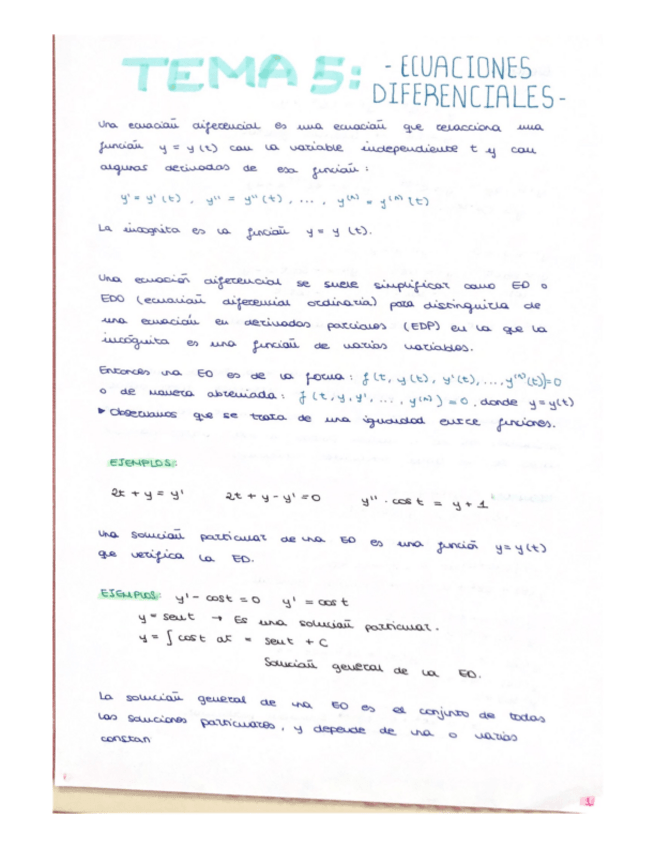 TEMA 5: - ECUACIONES
DIFERENCIALES -
Una ecuación diferencial es una ecuación que relacciona una
función y = y (t) con la variable independiente t y con
algunas derivadas de esa función:
y' = y' (t) , y'' = y'' (t) , ... , y⁽ⁿ⁾ = y⁽ⁿ⁾ (t)
La incognita es la función y = y (t).
Una ecuación diferencial se suele simplificar como ED o
EDO (ecuación diferencial ordinaria) para distinguirla de
una ecuación en derivadas parciales (EDP) en la que la
incógnita es una función de varias variables.
Entonces una ED es de la forma: f (t, y (t), y' (t), ..., y⁽ⁿ⁾ (t)) = 0
o de manera abreviada: f (t, y, y', ..., y⁽ⁿ⁾) = 0, donde y = y(t)
▸ Observamos que se trata de una igualdad entre funciones.
EJEMPLOS:
2t + y = y' 2t + y - y' = 0 y'' · cos t = y + 1
Una solución particular de una ED es una función y = y (t)
que verifica la ED.
EJEMPLOS: y' - cost = 0 y' = cos t
y = sent → Es una solución particular.
y = ∫ cost dt = sent + C
Solución general de la ED.
La solución general de una ED es el conjunto de todas
las soluciones particulares, y depende de una o varias
constan
1